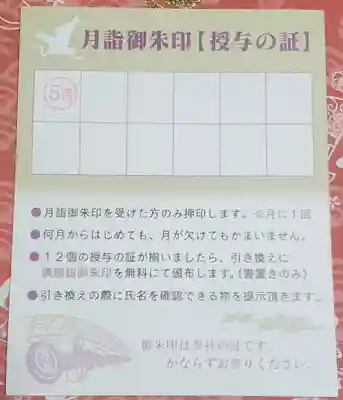 月詣御朱印【授与の証】
5月
●月詣御朱印を受けた方のみ押印します。※月に1回
●何月からはじめても、月が欠けてもかまいません。
●12個の授与の証が揃いましたら、引き換えに
満願詣御朱印を無料にて頒布します。(書置きのみ)
●引き換えの際に氏名を確認できる物を提示頂きます。
御朱印は参拝の証です。
かならずお参りください。